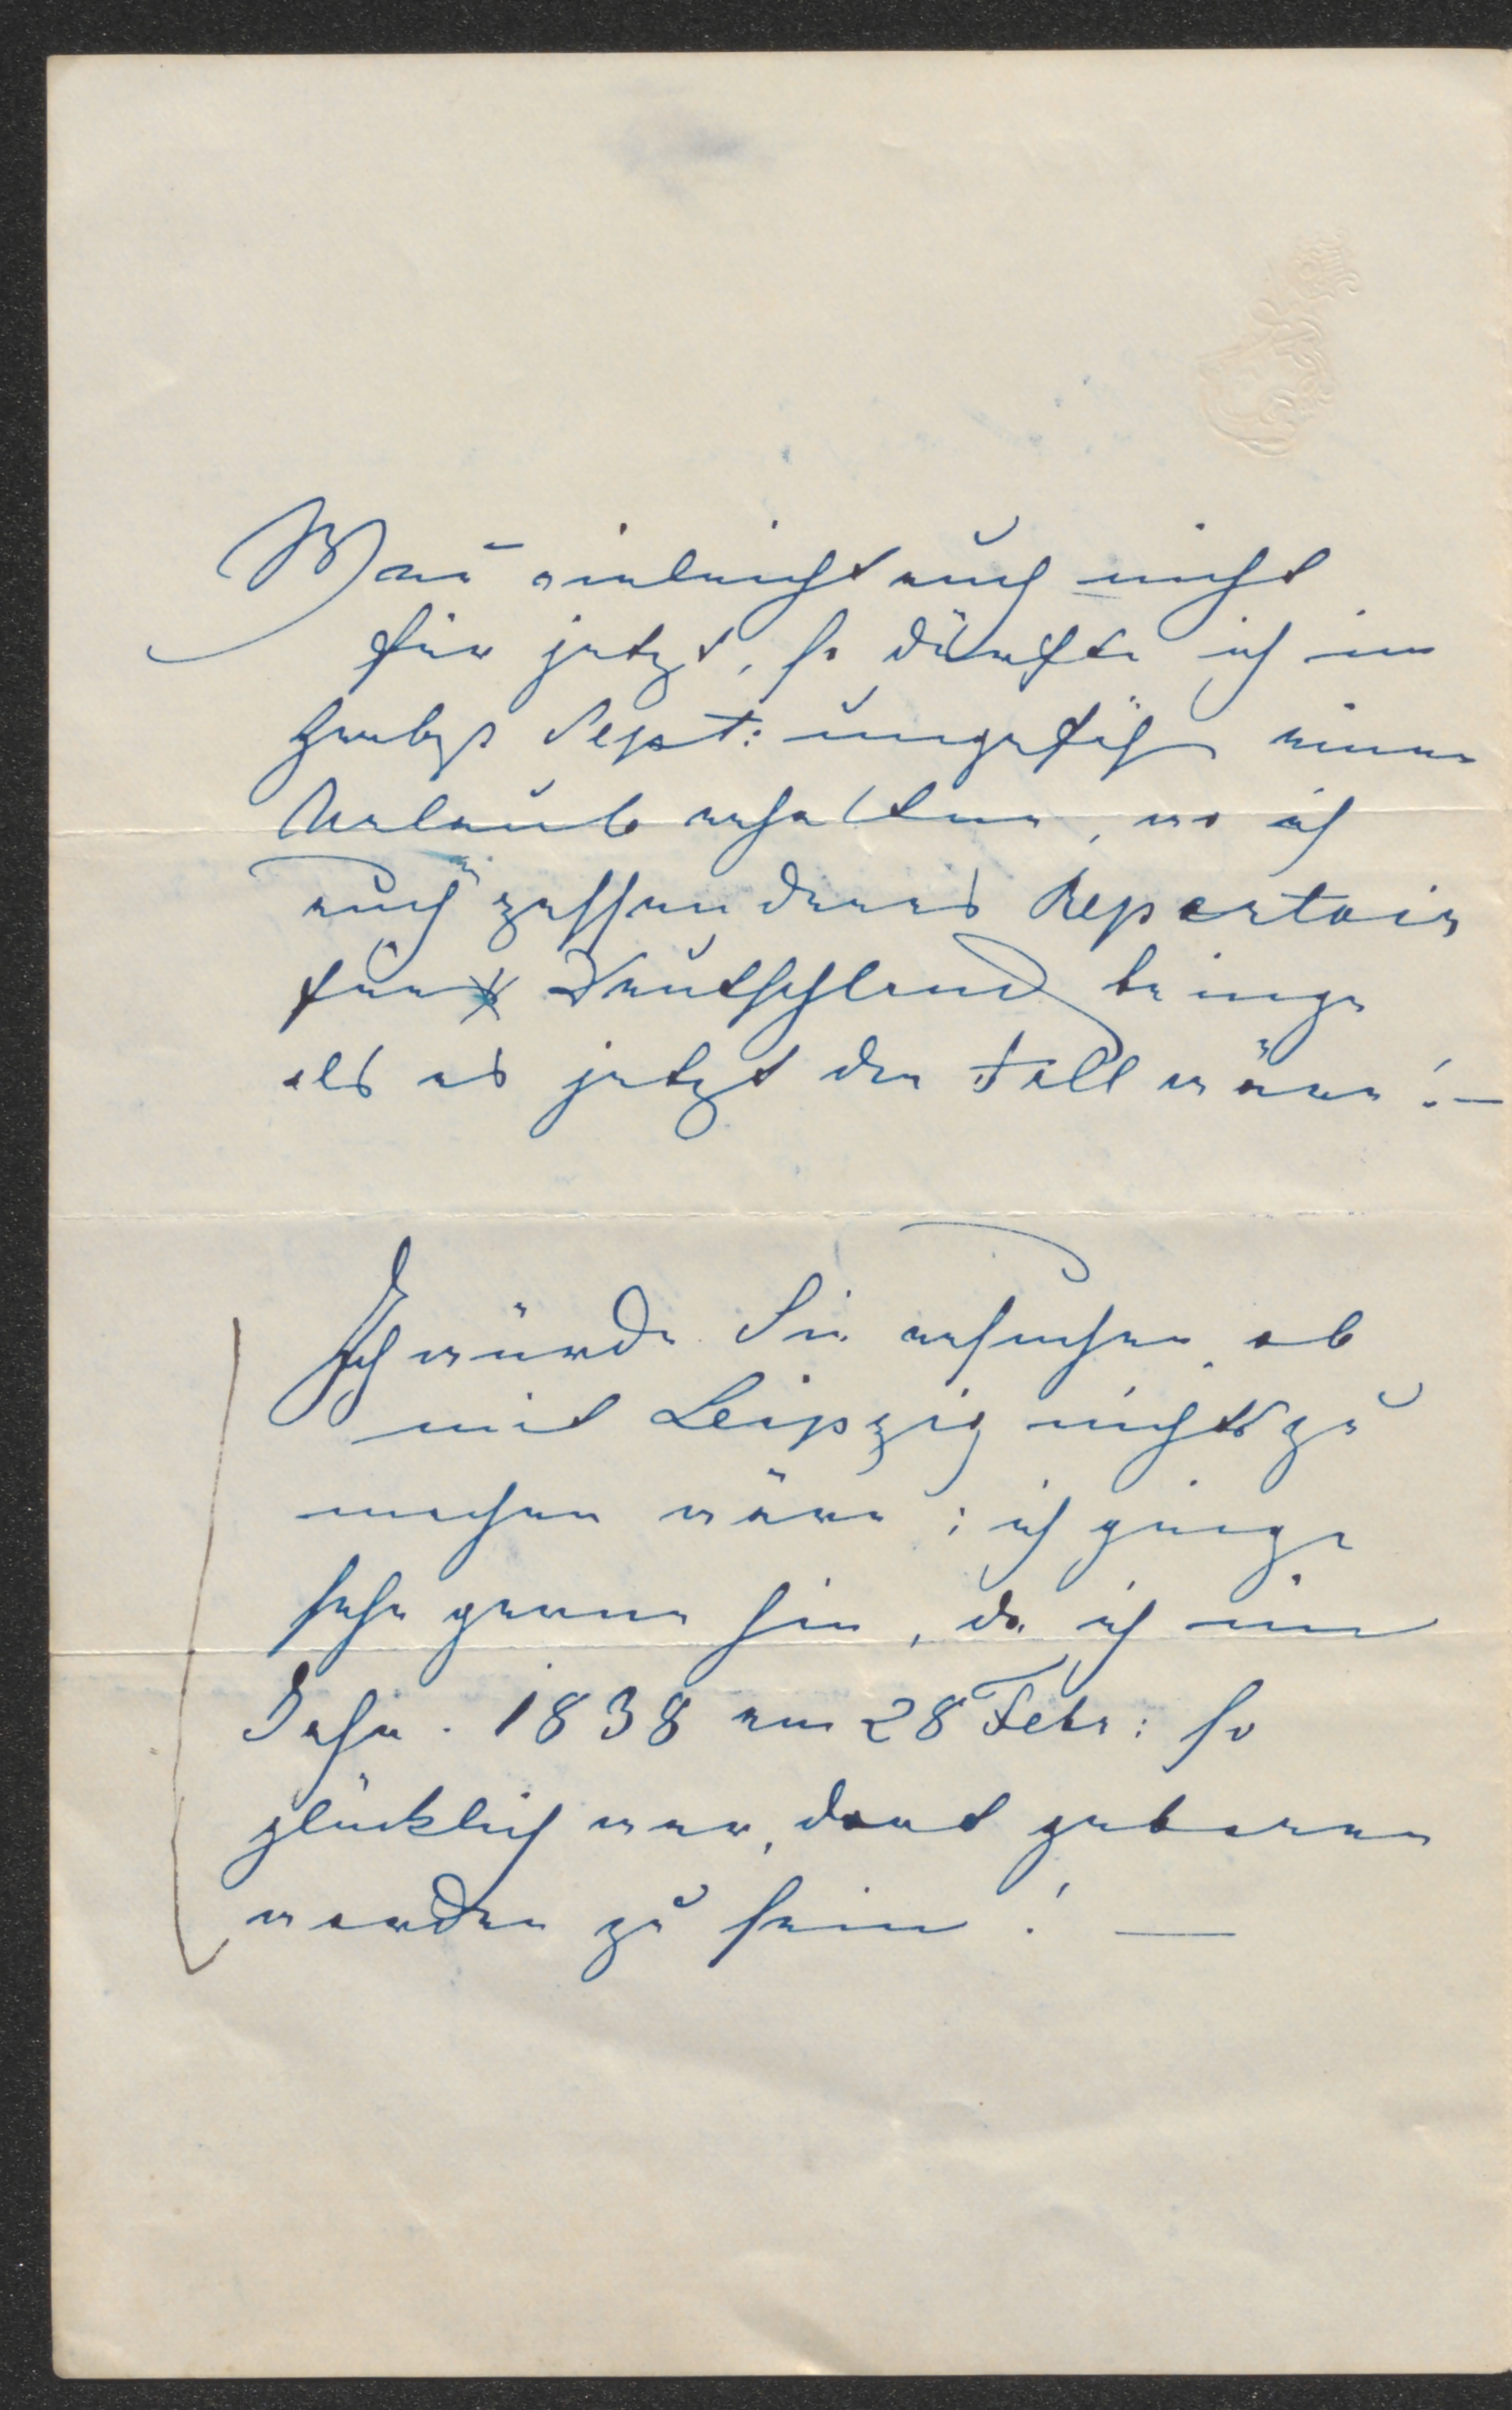 Wenn vieleicht auch nicht
für jetzt, so dürfte ich im
Herbst Sept: ungefähr einen
Urlaub erhalten, wo ich
auch passenderes Repertoir
für Deutschland bringe
als es jetzt der Fall wäre! —
Ich würde Sie ersuchen, ob
mit Leipzig nichts zu
machen wäre; ich ginge
sehr gerne hin, da ich im
Jahr. 1838 am 28 Febr: so
glücklich war, dort geboren
worden zu sein! —